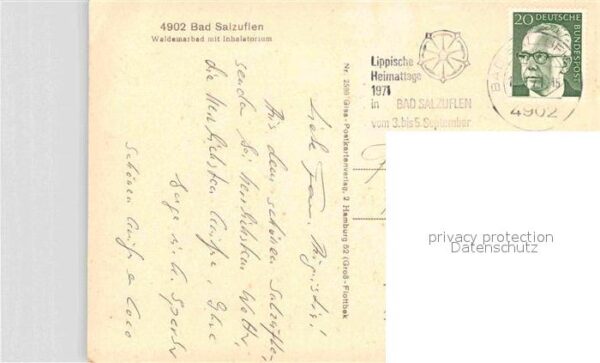 4902 Bad Salzuflen
Waldemarbad mit Inhalatorium
Lippische
Heimattage
1971
in BAD SALZUFLEN
vom 3. bis 5. September
20
DEUTSCHE
BUNDESPOST
BAD
4902
Nr. 2599 Gisa-Postkartenverlag, 2 Hamburg 52 (Groß-Flottbek
Liebe
Aus dem schönen Salzuflen
sende bei herrlichstem Wetter
die herzlichsten Grüße, Ihre
schönen Gruß
privacy protection
Datenschutz